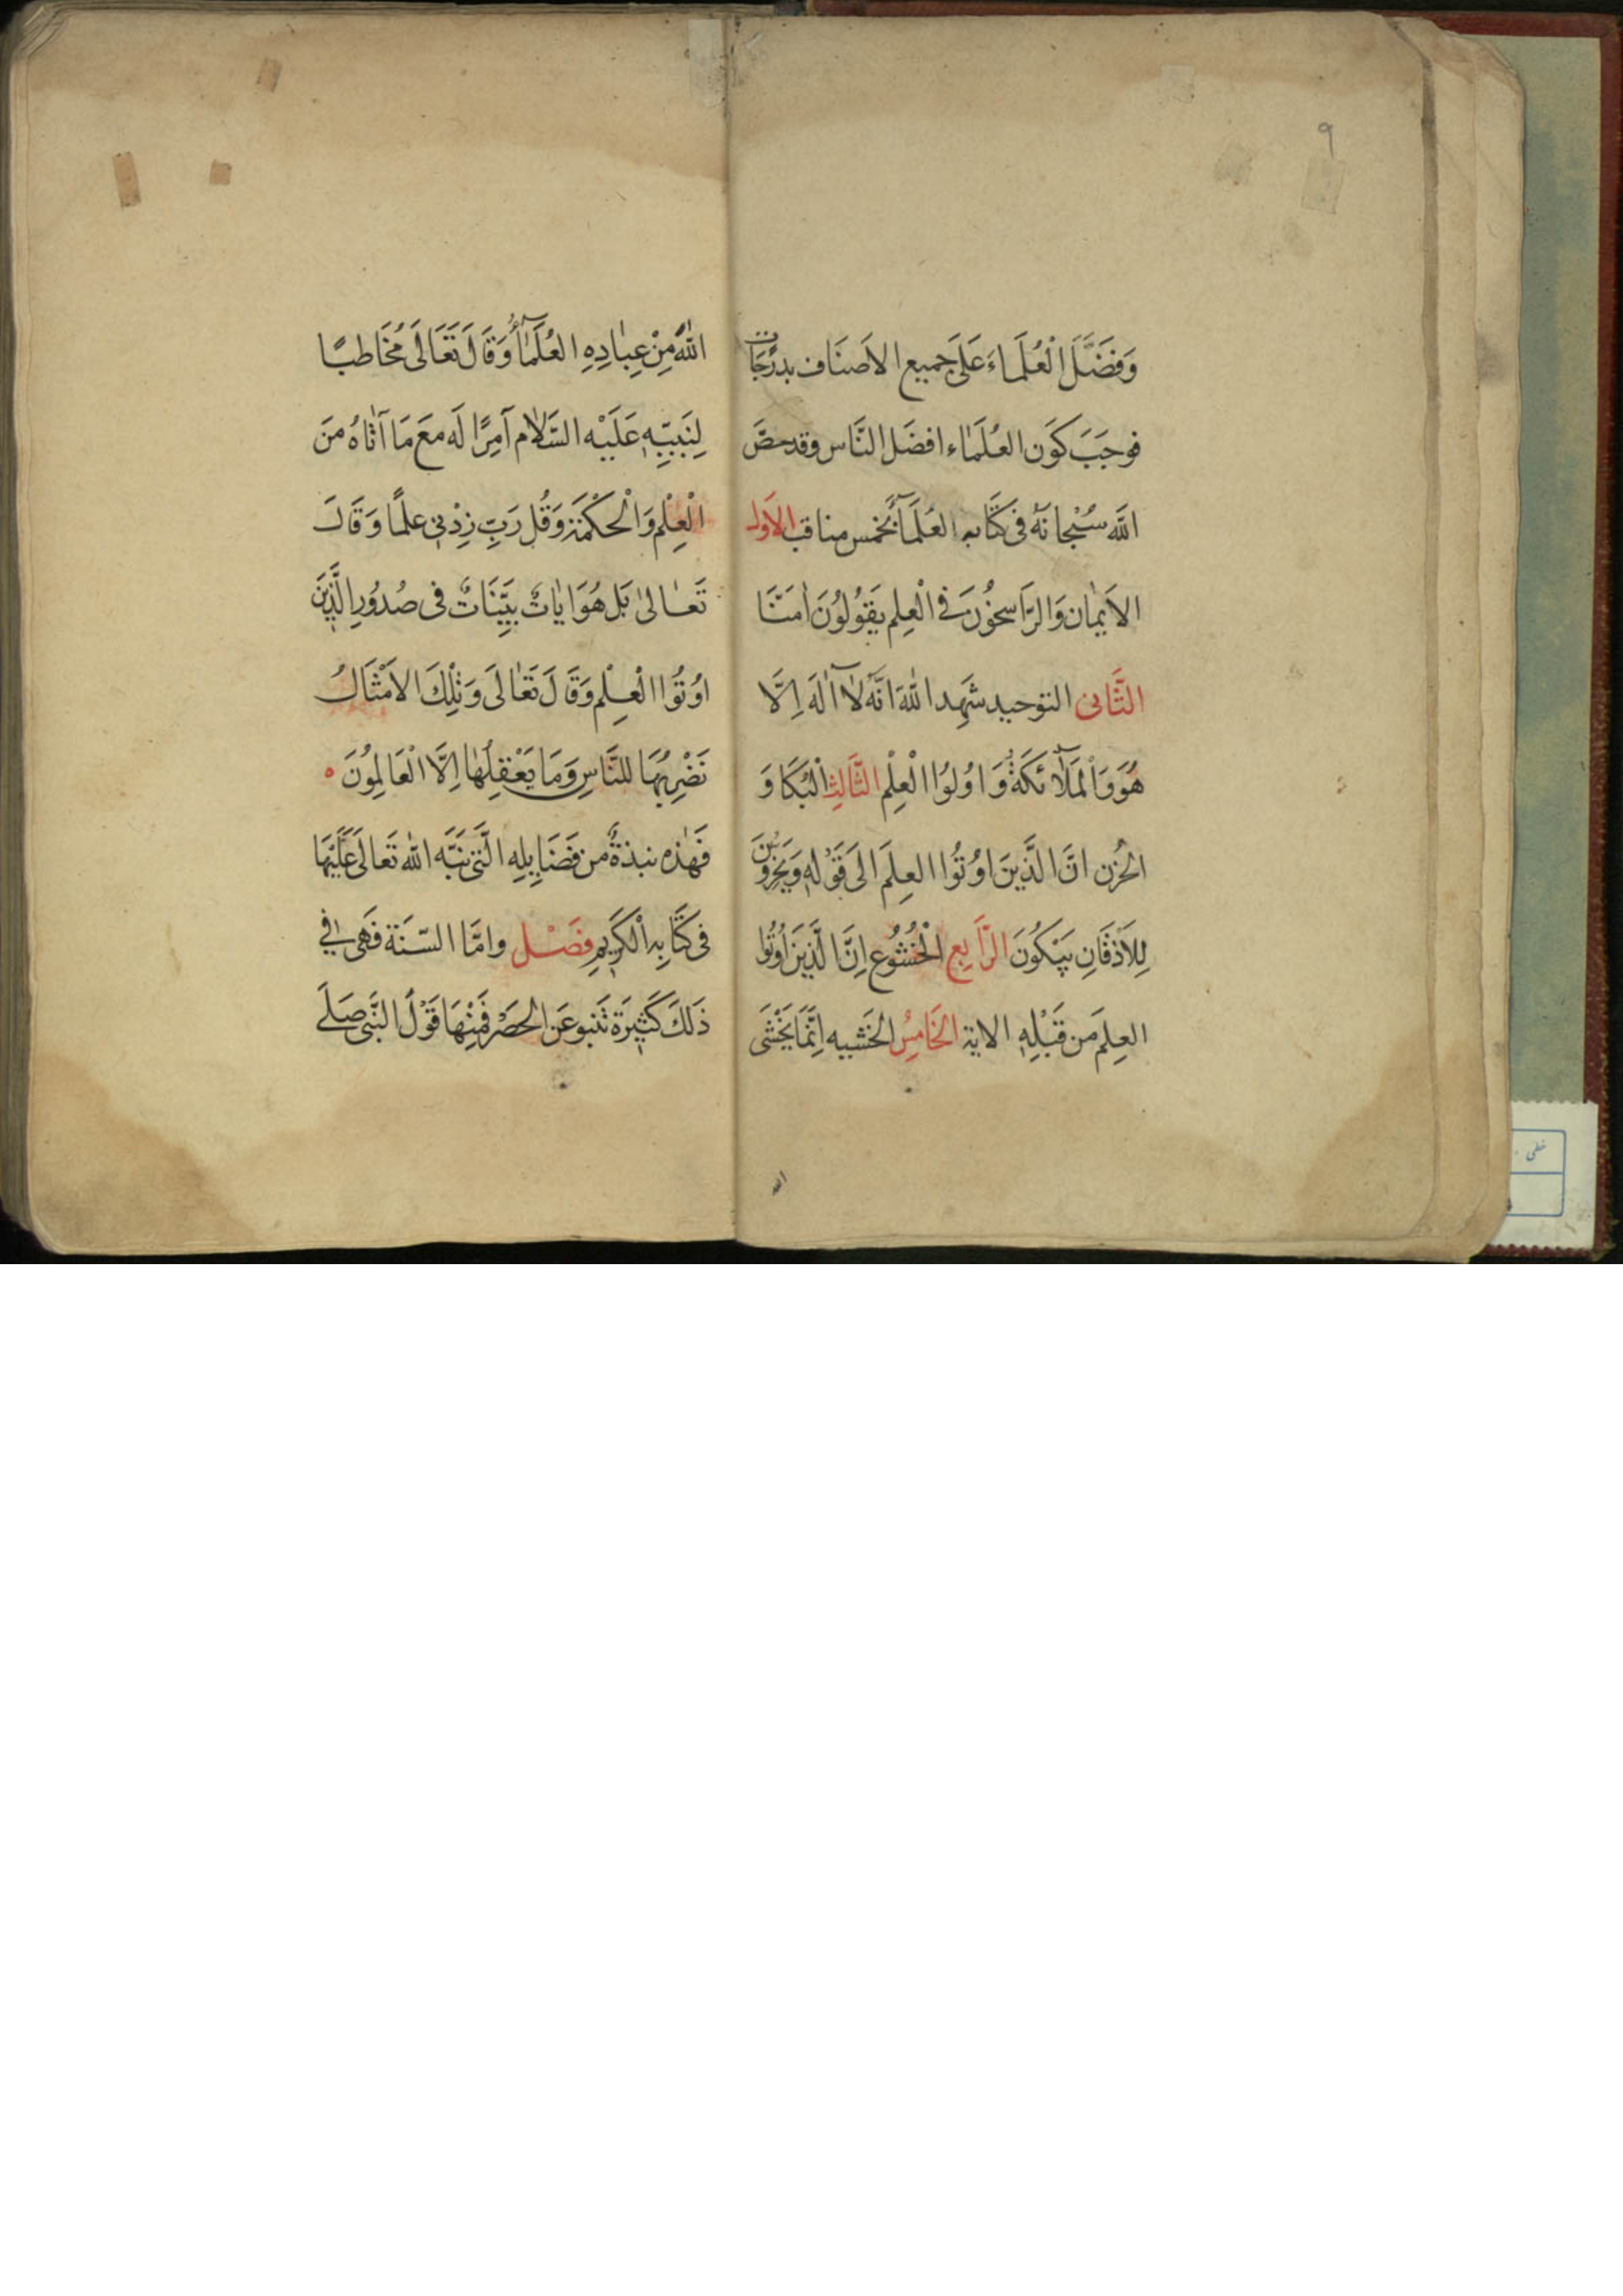 ٩
وَفَضَّلَ الْعُلَمَاءَ عَلَى جَميع الاَصنَاف بدَرَجَات
فوجَبَ كَون العُلَمَاء افضَل النَّاس وقد خصَّ
اللّه سُبْحانَهُ فى كتَابه العُلَمَآءَ بخَمس مناقب الاَول
الاَيمٰان وَالرَّاسخُونَ فى الْعِلم يَقوُلوُنَ اٰمَنَّا
الثَّانى التوحيد شَهِد اللّٰهُ انَّهُ لٰا آلٰهَ اِلَّا
هُوَ وَالْمَلٰٓائكَةُ وَ اوُلوُا الْعِلْم الثَّالِث الْبُكَا وَ
الحُزن انَّ الَّذينَ اوُتُوا العِلمَ الىٰ قَوْلهِ وَيَخِرُّونَ
لِلاَذقَانِ يَبْكُونَ الرَّابِع الْخُشُوُع اِنَّ الَّذِينَ اُوتُوا
العِلمَ من قَبْلِهِ الاية الخَامِسُ الخَشيه اِنَّمَا يَخْشَى
اللّه
اللّٰهَ مِنْ عِبٰادِهِ العُلَمٰٓاءُ وَقَالَ تَعَالَى مُخَاطبًا
لِنَبيِّهِ عَلَيْه السَّلٰام آمِرًا لَه معَ مَا آتٰاهُ منَ
الْعِلْم وَالْحكْمَة وَقُل رَبِّ زِدْنى علمًا وَقَالَ
تَعٰالىٰ بَل هُوَ ايٰاتٌ بَيِّنَاتٌ فى صُدوُرِ الَّذِينَ
اوُتُوا الْعِلْم وَقَالَ تَعٰالَى وَتِلْكَ الاَمْثَالُ
نَضْرِبُهَا للنَّاسِ وَمَا يَعْقِلُهٰا اِلَّا الْعَالِموُنَ ه
فَهٰذه نبذةٌ من فَضَايِلِهِ الَّتى نَبَّه اللّٰه تَعالَى عَلَيْهَا
فى كتَابِه الْكَرِيمِ فَصْل وامَّا السّنَة فَهى فى
ذَلكَ كَثيرَة تَنبو عَن الحصَرْ فَمِنْهَا قَوْلُ النَّبى صَلَّى
خطى